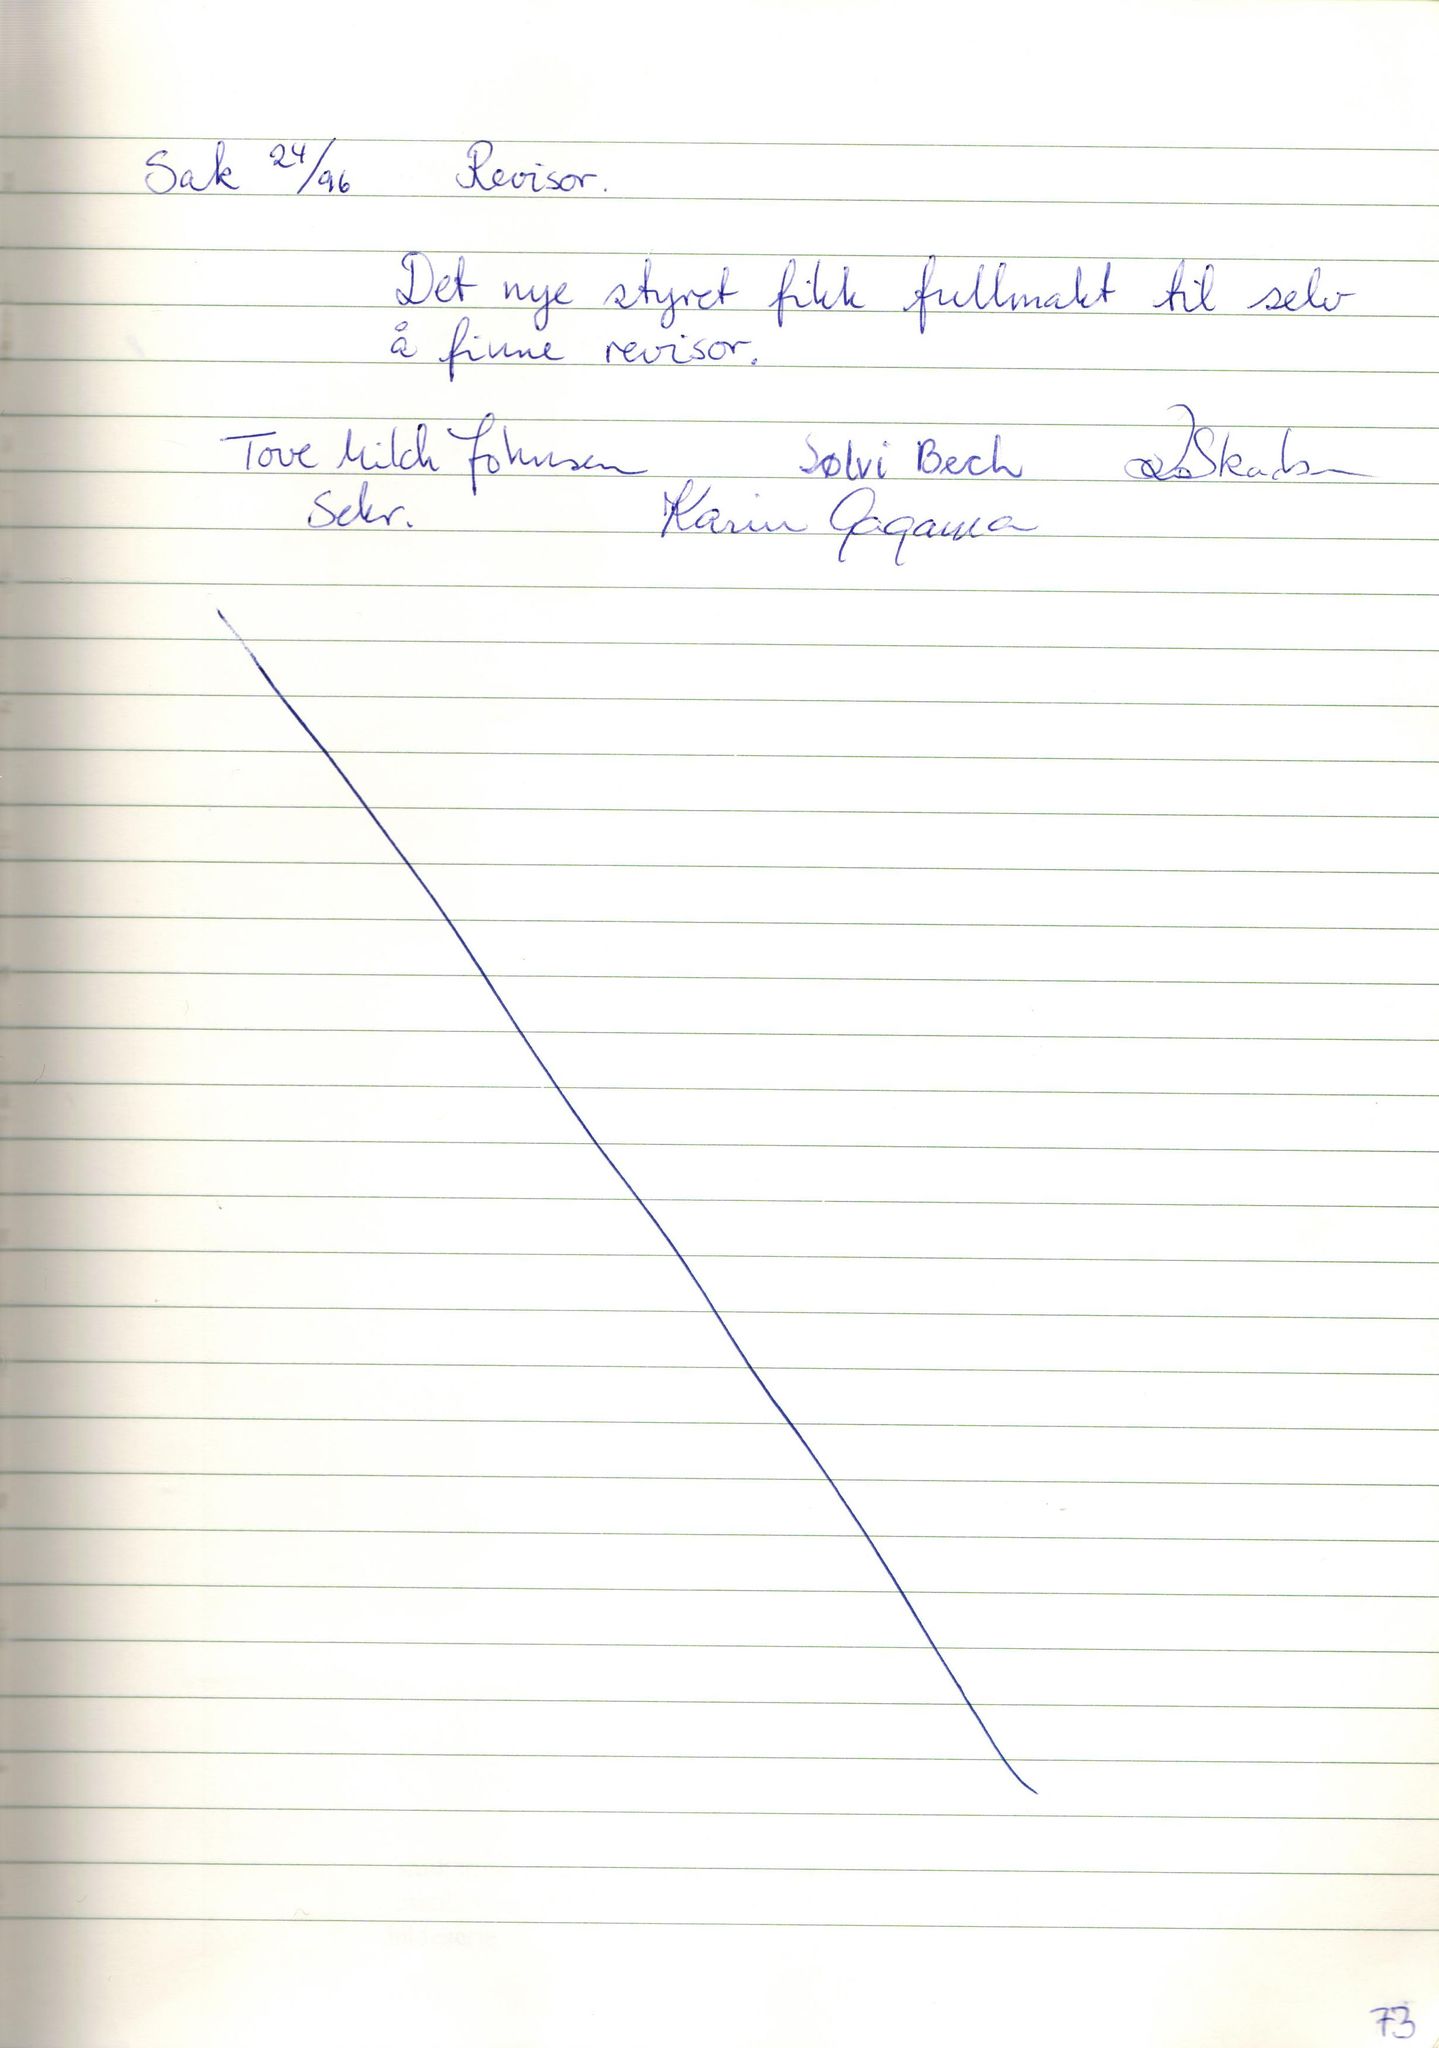 Sak 24/96 Revisor.
Det nye styret fikk fullmakt til selv
å finne revisor.
Tove Milch Johnsen Sølvi Bech
Sekr. Karin
73